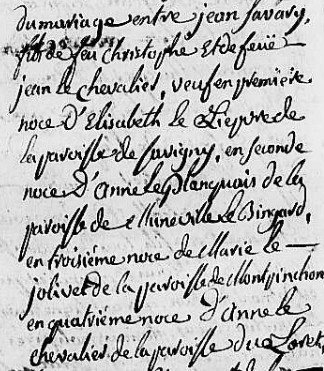 du mariage entre jean Savary,
fils de feu Christophe Et de feuë
jean le chevalier, veuf en premiere
noce D'Elisabeth le Lieuvre de
la paroisse de Savigny, en seconde
noce D'anne le Blanquais de la
paroisse de Muneville le Bingard,
en troisiéme noce de Marie le
jolivet de la paroisse de Montpinchon
en quatriéme noce D'anne le
chevalier de la paroisse du Loret